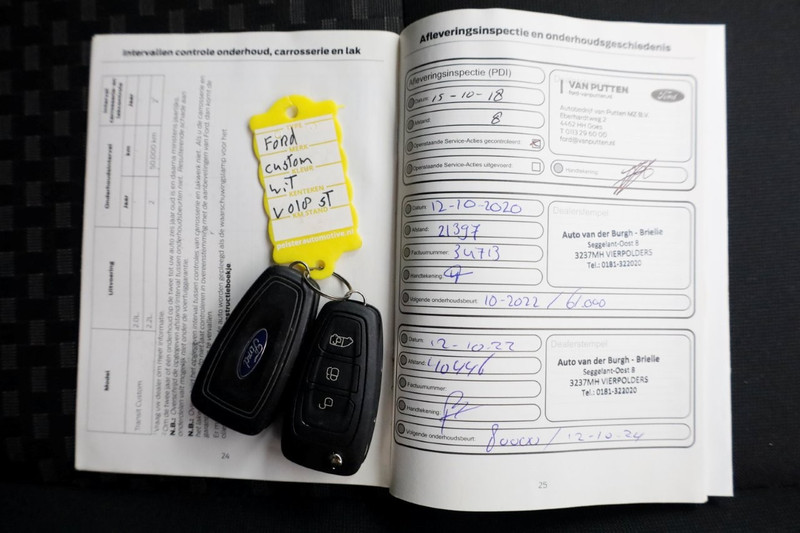 Intervallen controle onderhoud, carrosserie en lak
Interval
carrosserie- en
lakcontrole
Jaar
2
Onderhoudsinterval
km
50.000 km
Jaar
2
Uitvoering
2.0L
2.2L
Model
Transit Custom
Vraag uw dealer om meer informatie.
N.B.:
N.B.:
24
TYPE
Ford
MERK
custom
KLEUR
wiT
KENTEKEN
V018 ST
KM STAND
peisterautomotive.nl
Ford
Afleveringsinspectie en onderhoudsgeschiedenis
Afleveringsinspectie (PDI)
Datum: 15-10-18
Afstand: 8
Openstaande Service-Acties gecontroleerd:
Openstaande Service-Acties uitgevoerd:
VAN PUTTEN
ford-vanputten.nl
Ford
Autobedrijf van Putten MZ B.V.
Eberhardweg 2
4462 HH Goes
T 0113 29 60 00
ford@vanputten.nl
Handtekening:
Datum: 12-10-2020
Afstand: 21397
Factuurnummer: 34713
Handtekening:
Volgende onderhoudsbeurt: 10-2022 / 61.000
Dealerstempel
Auto van der Burgh - Brielle
Seggelant-Oost 8
3237MH VIERPOLDERS
Tel.: 0181-322020
Datum: 12-10-22
Afstand: 40446
Factuurnummer:
Handtekening:
Volgende onderhoudsbeurt: 80000 / 12-10-24
Dealerstempel
Auto van der Burgh - Brielle
Seggelant-Oost 8
3237MH VIERPOLDERS
Tel.: 0181-322020
25